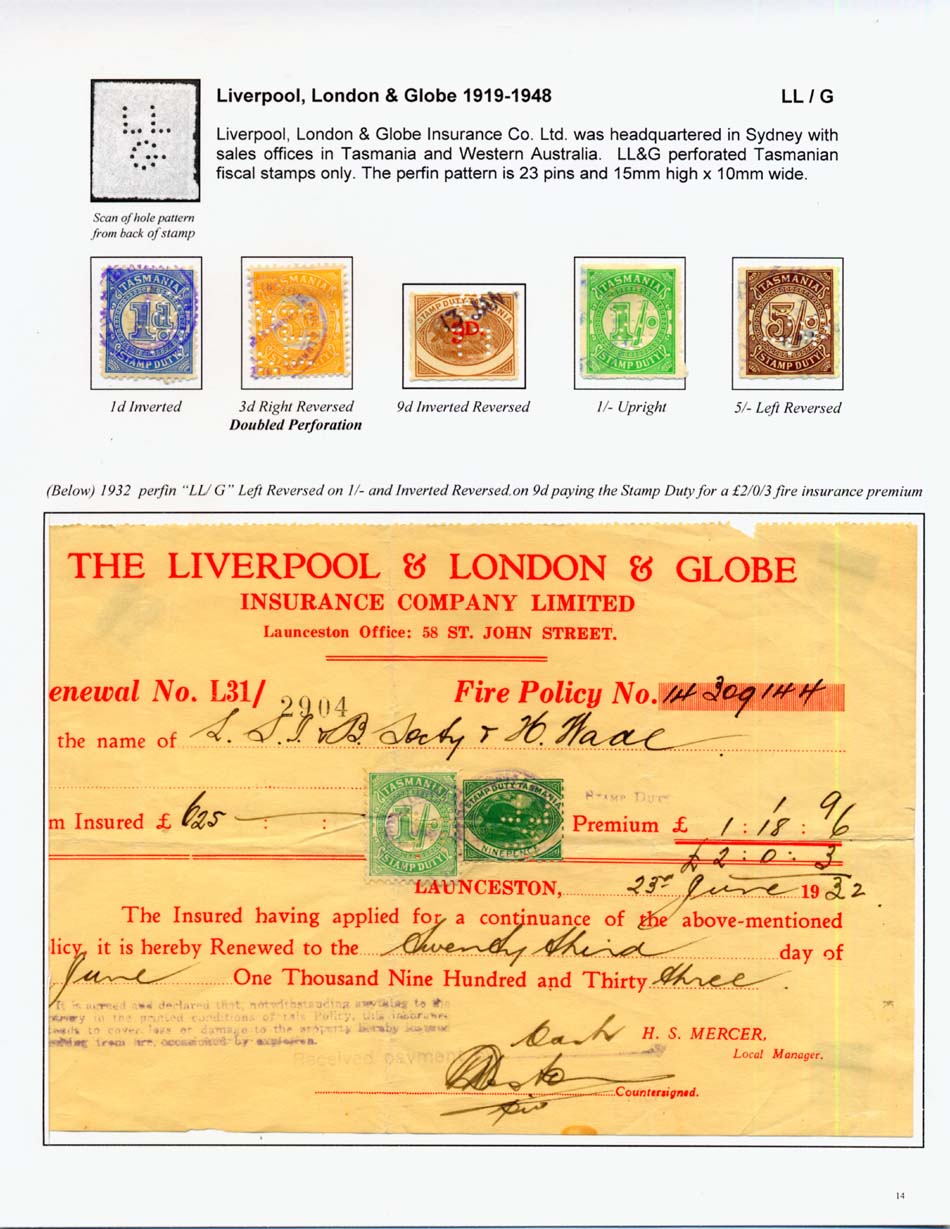 Liverpool, London & Globe 1919-1948 LL / G
Liverpool, London & Globe Insurance Co. Ltd. was headquartered in Sydney with
sales offices in Tasmania and Western Australia. LL&G perforated Tasmanian
fiscal stamps only. The perfin pattern is 23 pins and 15mm high x 10mm wide.
LL
G
Scan of hole pattern
from back of stamp
TASMANIA
1d
STAMP DUTY
TASMANIA
STAMP DUTY TASMANIA
13 JAN
9D.
TASMANIA
1/-
STAMP DUTY
TASMANIA
5/-
STAMP DUTY
1d Inverted
3d Right Reversed
Doubled Perforation
9d Inverted Reversed
1/- Upright
5/- Left Reversed
(Below) 1932 perfin "LL/ G" Left Reversed on 1/- and Inverted Reversed.on 9d paying the Stamp Duty for a £2/0/3 fire insurance premium
THE LIVERPOOL & LONDON & GLOBE
INSURANCE COMPANY LIMITED
Launceston Office: 58 ST. JOHN STREET.
enewal No. L31/ 2904 Fire Policy No. 14309144
the name of L. S. I & B. Socty & H. Wade
TASMANIA
1/-
STAMP DUTY
STAMP DUTY TASMANIA
NINEPENCE
STAMP DUTY 1 9
m Insured £ 625 - : - : Premium £ 1 : 18 : 6
£ 2 : 0 : 3
LAUNCESTON, 23rd June 1932
The Insured having applied for a continuance of the above-mentioned
licy, it is hereby Renewed to the Twenty third day of
June One Thousand Nine Hundred and Thirty three
It is agreed and declared that, notwithstanding anything to the
in the printed conditions of this Policy, this insurance
to cover loss or damage to the property
fire, occasioned by explosion.
Received payment
H. S. MERCER,
Local Manager.
Countersigned.
14